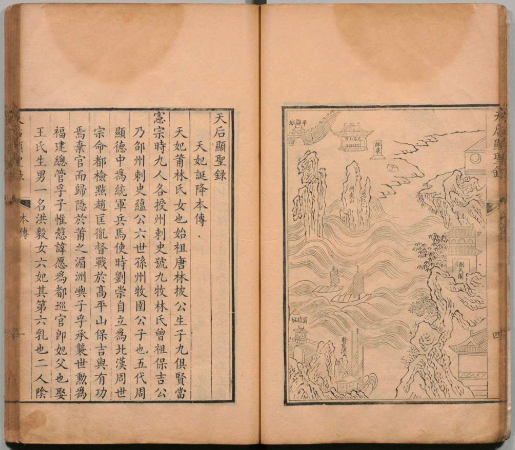 天后顯聖錄
天妃誕降本傳
天妃莆林氏女也始祖唐林披公生子九俱賢當
憲宗時九人各授州刺史號九牧林氏曾祖保吉公
乃邵州刺史蘊公六世孫州牧圉公子也五代周
顯德中爲統軍兵馬使時劉崇自立爲北漢周世
宗命都檢點趙匡胤督戰於高平山保吉與有功
焉棄官而歸隱於莆之湄洲嶼子孚承襲世勳爲
福建總管孚子惟愨諱愿爲都巡官即妃父也娶
王氏生男一名洪毅女六妃其第六乳也二人陰
天后顯聖錄
本傳
一